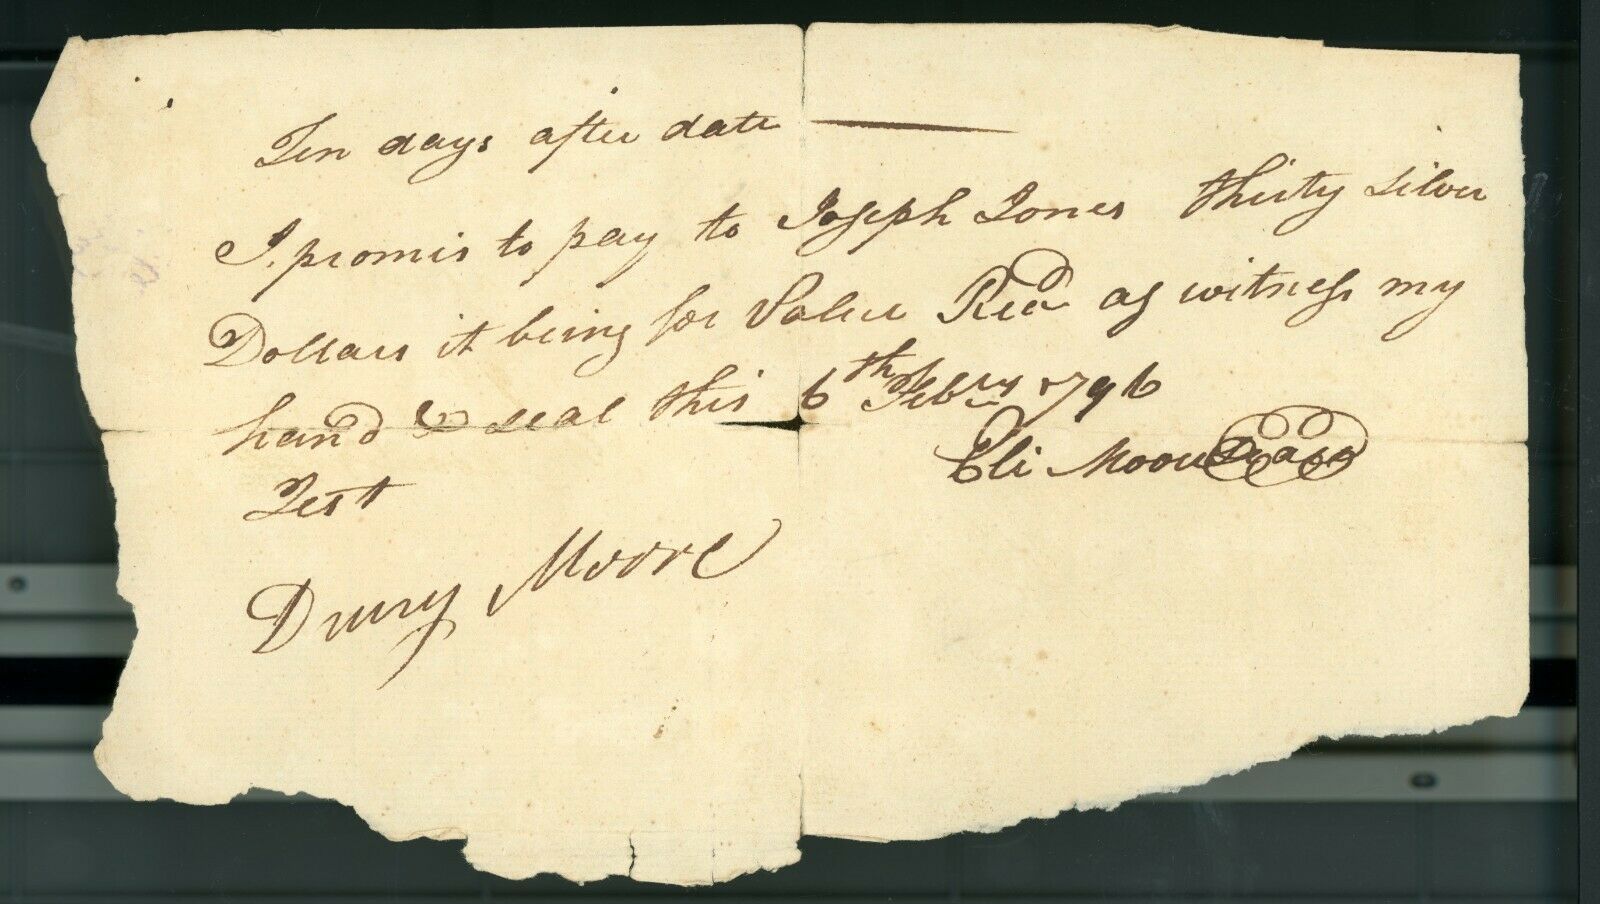 Ten days after date
I promis to pay to Joseph Jones thirty silver
Dollars it being for Value Recd as witness my
hand & seal this 6th Febry 1796
Test
Eli Moore Seal
Drury Moore